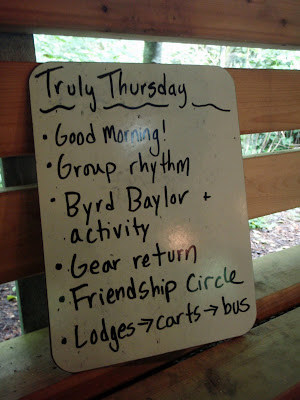 Truly Thursday
• Good Morning!
• Group rhythm
• Byrd Baylor +
activity
• Gear return
• Friendship Circle
• Lodges→carts→bus